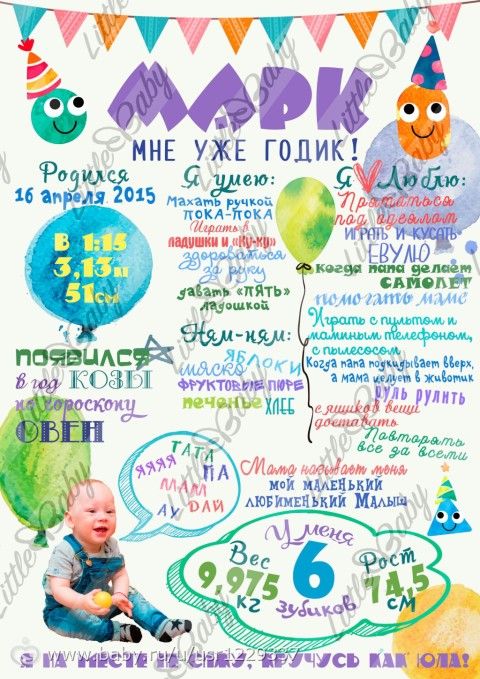 МАРК
МНЕ УЖЕ ГОДИК!
Родился
16 апреля 2015
В 1:15
3,13кг
51см
ПОЯВИЛСЯ
в год КОЗЫ
по гороскопу
ОВЕН
Я умею:
Махать ручкой
ПОКА-ПОКА
Играть в
ладушки и «Ку-ку»
здороваться
за руку
давать «ПЯТЬ»
ладошкой
Ням-ням:
ЯБЛОКИ
мяско
ФРУКТОВЫЕ ПЮРЕ
печенье ХЛЕБ
Я Люблю:
Прятаться
под одеялом
ИГРАТЬ И КУСАТЬ
ЕВУЛЮ
Когда папа делает
САМОЛЕТ
помогать маме
Играть с пультом и
маминым телефоном,
с пылесосом
Когда папа подкидывает вверх,
а мама целует в животик
РУЛЬ РУЛИТЬ
с ящиков вещи
доставать
Повторять
все за всеми
ЯЯЯЯ ТАТА
ПА
МАМ
АУ ДАЙ
Мама называет меня
МОЙ МАЛЕНЬКИЙ
ЛЮБИМЕНЬКИЙ МАЛЫШ
У меня
6
зубиков
Вес
9,975
кг
Рост
74,5
см
Я НА МЕСТЕ НЕ СИЖУ, КРУЧУСЬ КАК ЮЛА!
Little Baby